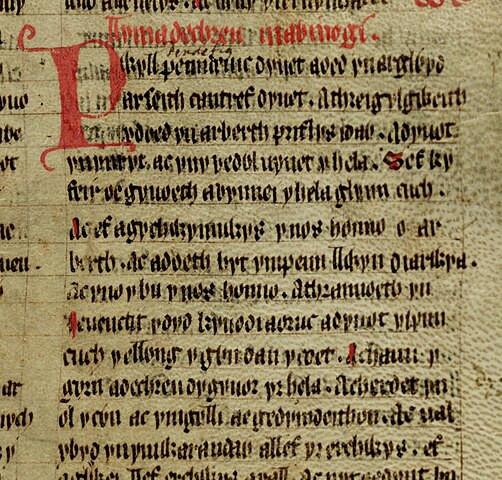 Llyma dechreu mabinogi.
pendefig
Pwyll penneuic dyuet aoed ynarglwyd
arseith cantref dyuet. Athreigylgweith
ydoed ynarberth priflys idaw. Adyuot
ynyuryt. ac yny vedwl uynet yhela. Sef ky
feir oe gyuoeth avynnei yhela glynn cuch.
Ac ef agychwynnwys ynos honno o ar
berth. Ac adoeth hyt ympenn llwyn diarwya.
Acyno ybu ynos honno. Athrannoeth yn
ieuenctit ydyd kyuodi aoruc adyuot ylynn
cuch yellwng ygwn dan ycoet. Achanu y
gorn adechreu dygyuor yrhela. Acherdet yn
ol ycwn ac ymgolli aegedymdeithon. Ac ual
ybyd ynymwarandaw allef yrerchwys. ef
aglywei llef erchwys arall. ac nyt oedynt un